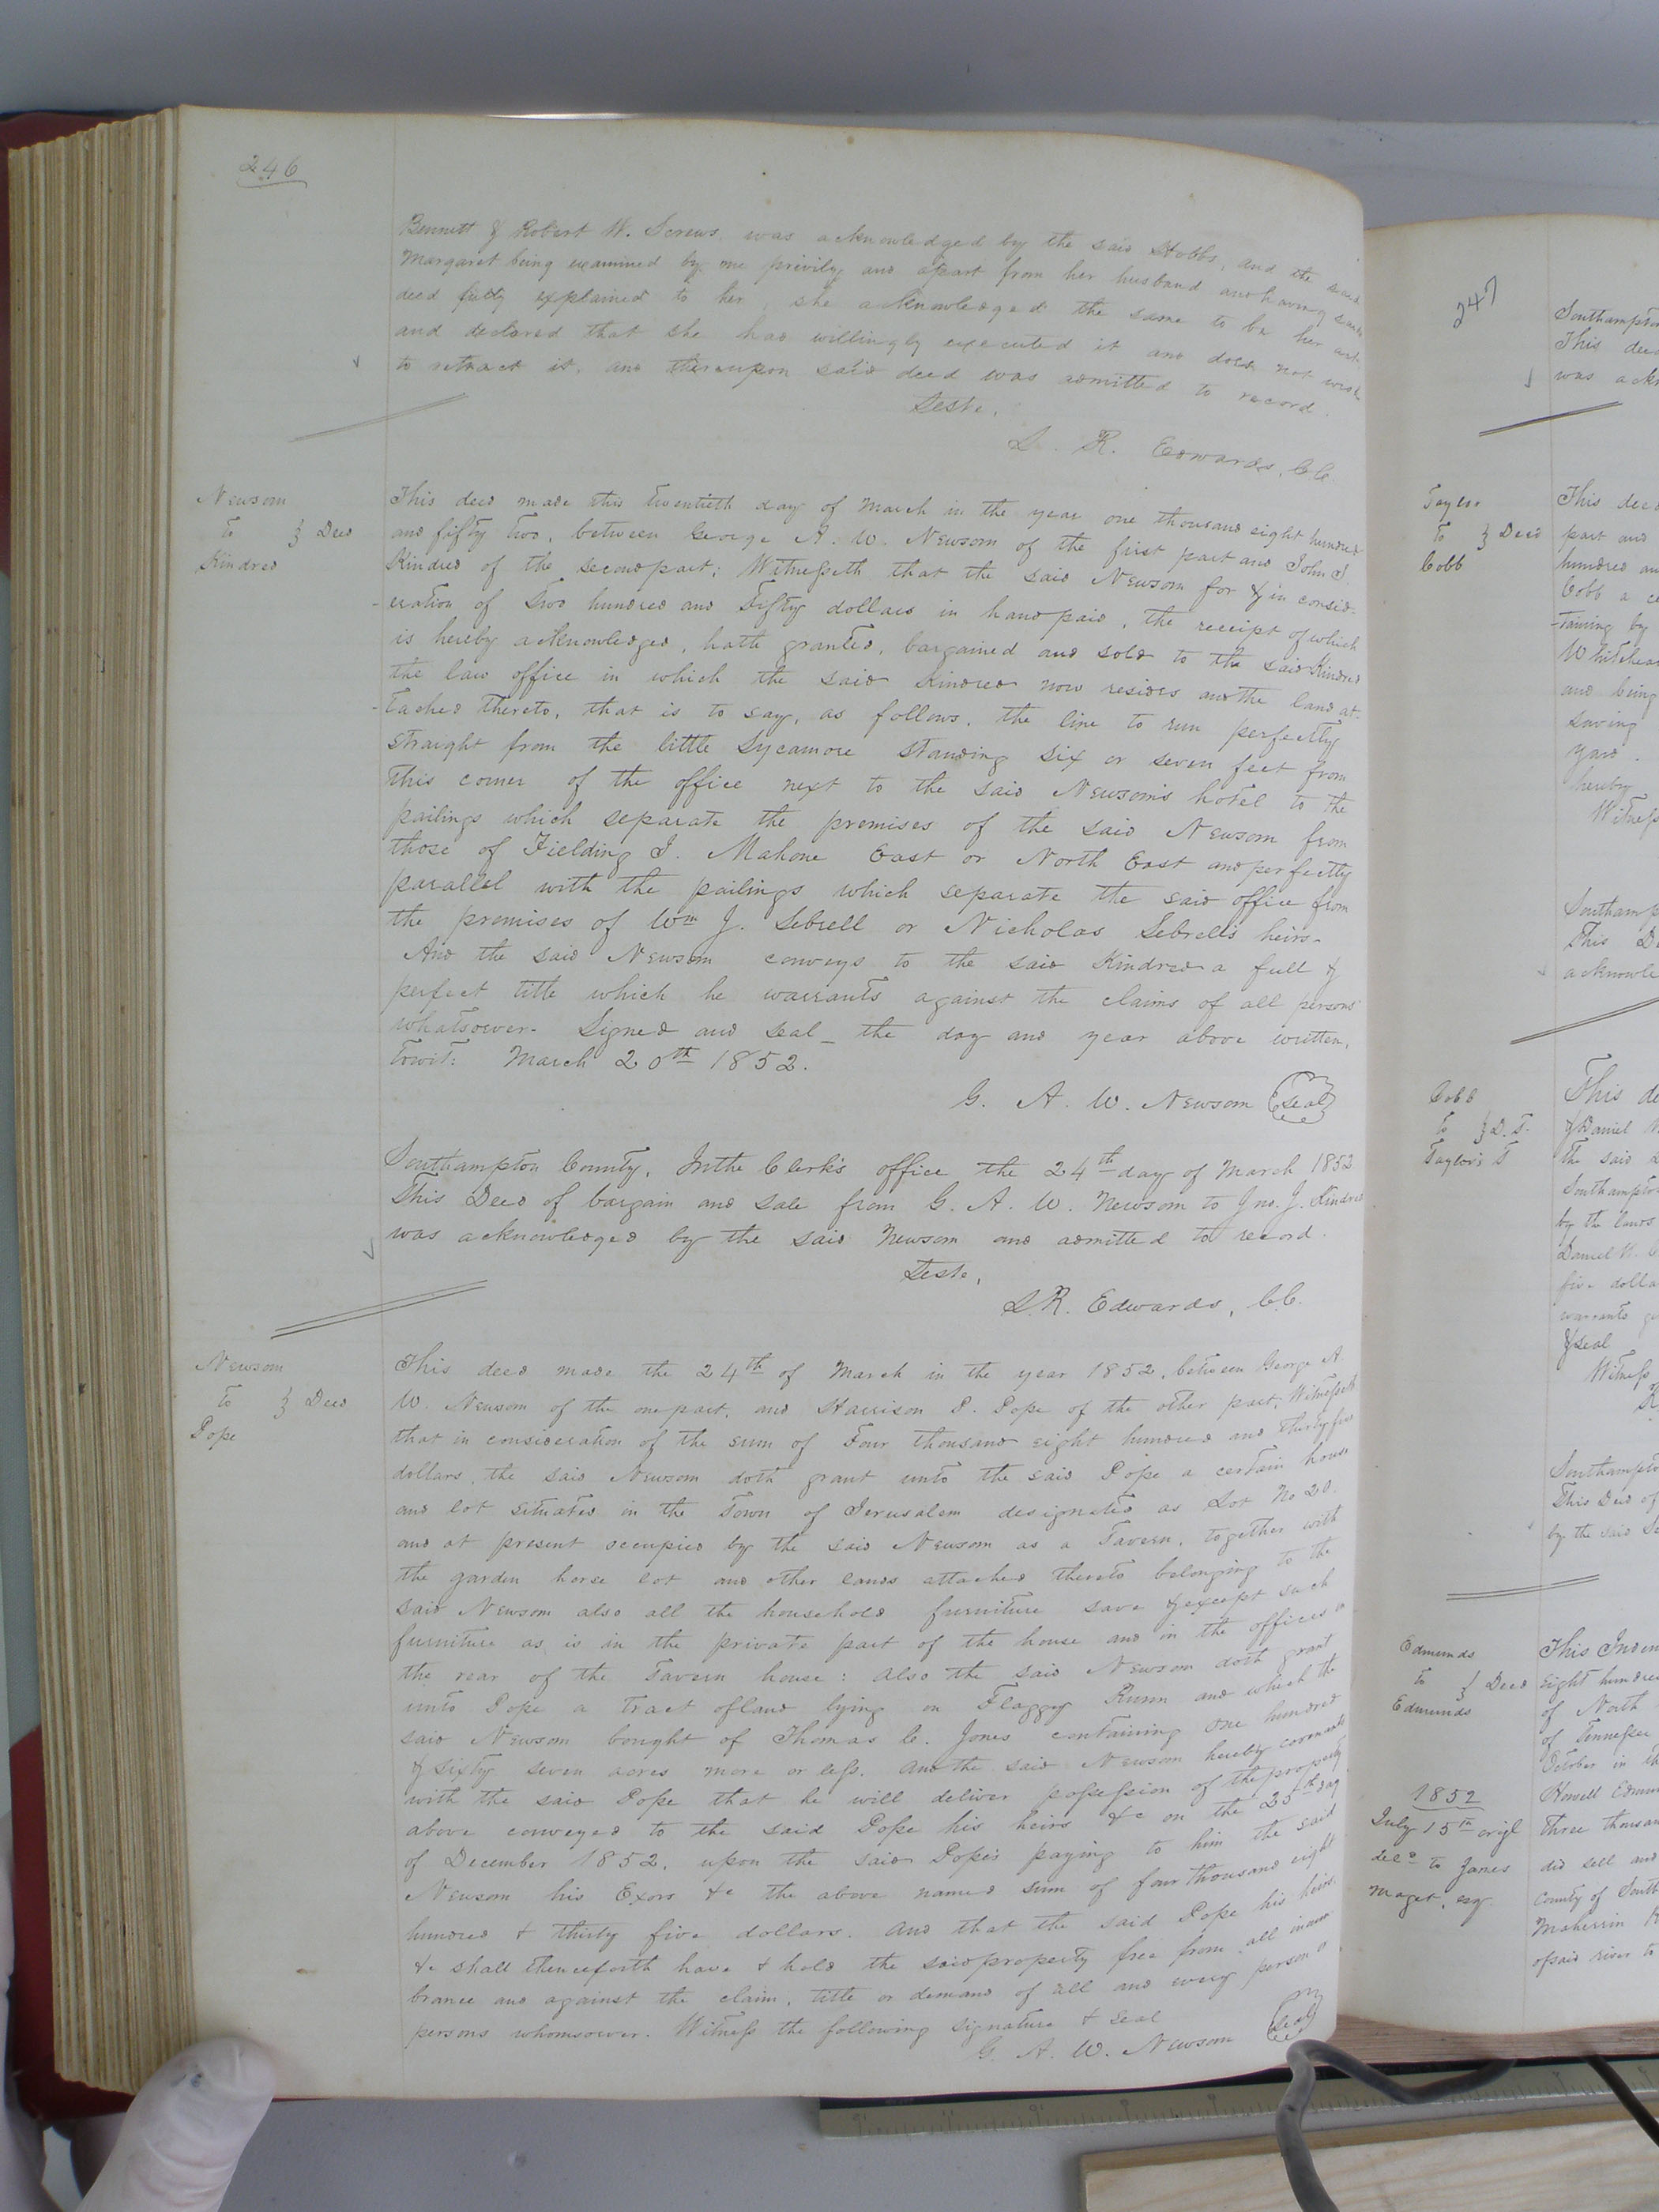 246
Bennett & Robert W. Screws, was acknowledged by the said Hobbs, and the said
Margaret being examined by me privily and apart from her husband and having said
deed fully explained to her, she acknowledged the same to be her act
and declared that she had willingly executed it and does not wish
to retract it, and thereupon said deed was admitted to record.
Teste,
L. R. Edwards, C.C.
Newsom
To } Deed
Kindred
This deed made this twentieth day of March in the year one thousand eight hundred
and fifty two, between George A. W. Newsom of the first part and John J.
Kindred of the second part; Witnesseth that the said Newsom for & in consid-
-eration of two hundred and Fifty dollars in hand paid, the receipt of which
is hereby acknowledged, hath granted, bargained and sold to the said Kindred
the law office in which the said Kindred now resides and the land at-
-tached thereto, that is to say, as follows, the line to run perfectly
straight from the little Sycamore standing six or seven feet from
this corner of the office next to the said Newsom's hotel to the
pailings which separate the premises of the said Newsom from
those of Fielding J. Mahone East or North East and perfectly
parallel with the pailings which separate the said office from
the premises of Wm J. Sebrell or Nicholas Sebrell's heirs-
And the said Newsom conveys to the said Kindred a full &
perfect title which he warrants against the claims of all persons
whatsoever- Signed and seal_ the day and year above written,
towit: March 20th 1852.
G. A. W. Newsom Seal
Southampton County, In the Clerk's office the 24th day of March 1852
This Deed of bargain and sale from G. A. W. Newsom to Jno. J. Kindred
was acknowledged by the said Newsom and admitted to record.
Teste,
L.R. Edwards, C.C.
Newsom
To } Deed
Pope
This deed made the 24th of March in the year 1852, between George A
W. Newsom of the one part, and Harrison P. Pope of the other part, Witnesseth
that in consideration of the sum of Four thousand eight hundred and thirty five
dollars, the said Newsom doth grant unto the said Pope a certain house
and lot situated in the Town of Jerusalem designated as Lot No 20.
and at present occupied by the said Newsom as a Tavern, together with
the garden horse lot and other lands attached thereto belonging to the
said Newsom also all the household furniture save & except such
furniture as is in the private part of the house and in the offices in
the rear of the Tavern house: also the said Newsom doth grant
unto Pope a tract of land lying on Flaggy Runn and which the
said Newsom bought of Thomas C. Jones containing one hundred
& sixty seven acres more or less. And the said Newsom hereby covenants
with the said Pope that he will deliver possession of the property
above conveyed to the said Pope his heirs &c on the 25th day
of December 1852, upon the said Pope's paying to him the said
Newsom his Exors &c the above named sum of four thousand eight
hundred & thirty five dollars. And that the said Pope his heirs
&c shall thenceforth have & hold the said property free from all incum
brance and against the claim, title or demand of all and every person or
persons whomsoever. Witness the following signature & seal
G. A. W. Newsom Seal
247
Southampton
This deed
was ackn
Taylor
To } Deed
Cobb
This deed
part and
hundred an
Cobb a ce
-taining by
Whitehea
and being
saving
yard.
hereby
Witness
Southamp
This De
acknowle
Cobb
To } D. T.
Taylor's T
This de
& Daniel
the said
Southampton
by the laws
Daniel
five dolla
warrants ge
& seal
Witness
Southampto
This Deed of
by the said
Edmunds
To } Deed
Edmunds
This Inden
eight hundre
of North
of Tennessee
October in th
Howell Edmun
three thousan
did sell and
county of South
Meherrin R
of said river to
1852
July 15th origl
deld to James
Maget, esq.